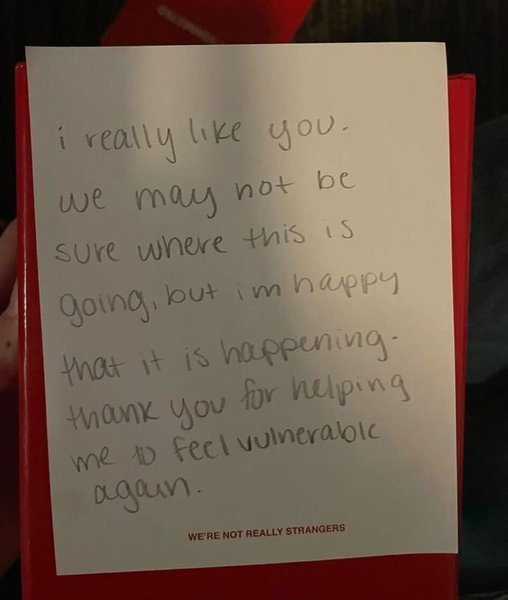 i really like you.
we may not be
sure where this is
going, but im happy
that it is happening.
thank you for helping
me to feel vulnerable
again.
WE'RE NOT REALLY STRANGERS